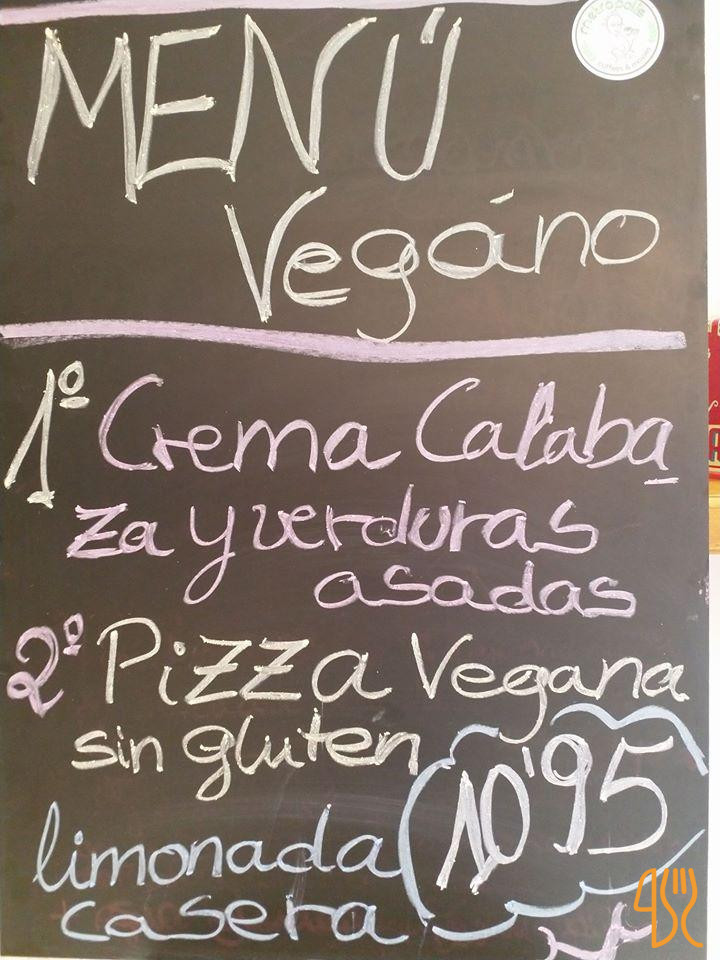 metropolis
MENÚ
Vegáno
1º Crema Calaba
za y verduras
asadas
2º Pizza Vegana
sin gluten
10'95
limonada
casera